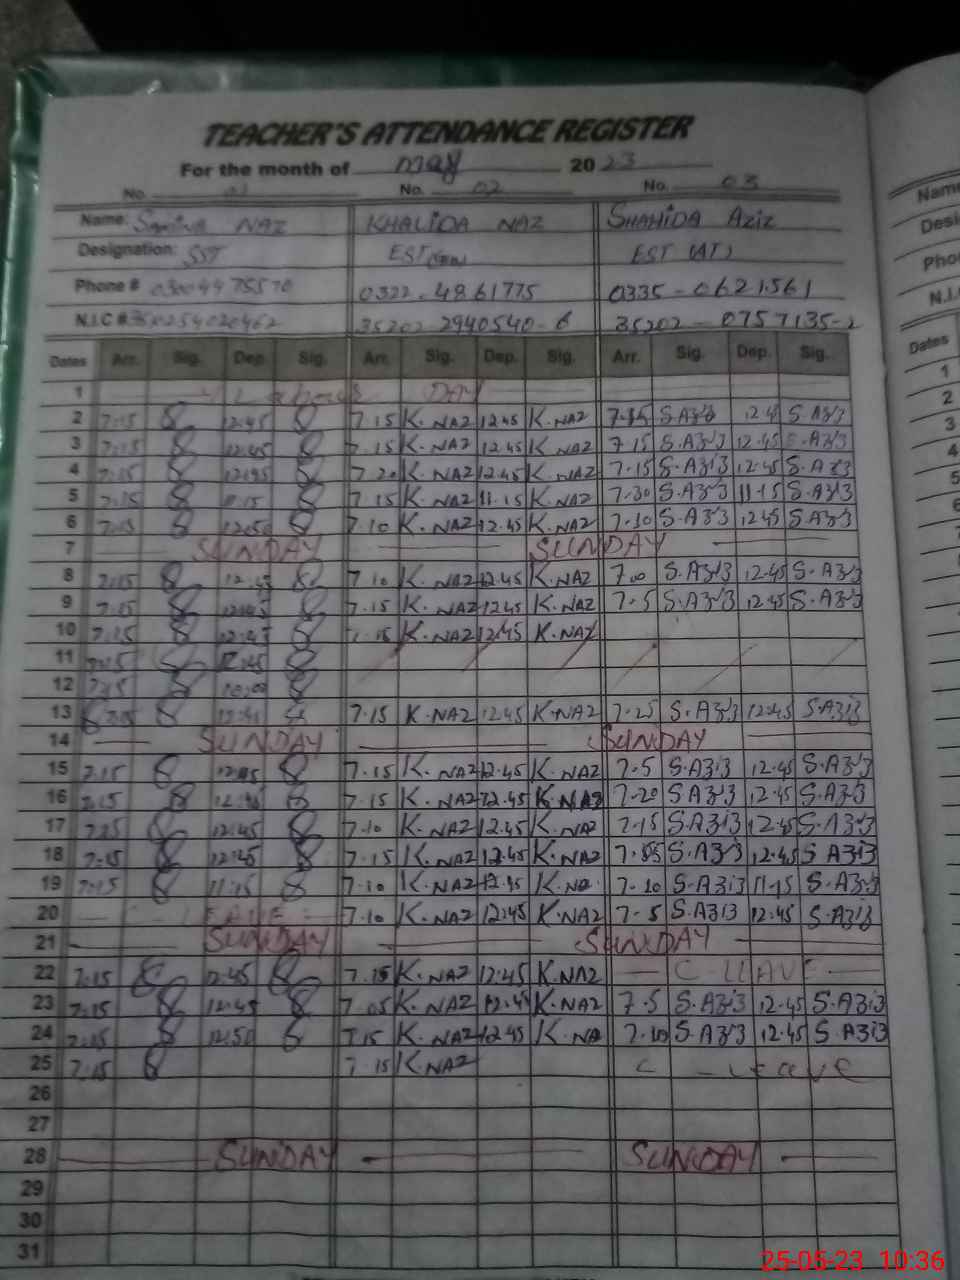 TEACHER'S ATTENDANCE REGISTER
For the month of may 2023
No. 01 No. 02 No. 03
Name: Samina NAZ KHALIDA NAZ SHAHIDA Aziz
Designation: SST EST EST (AT)
Phone # 03004475570 0322-4861775 0335-0621561
N.I.C # 35202-2940540-6 35202-0757135-2
Dates Arr. Sig. Dep. Sig. Arr. Sig. Dep. Sig. Arr. Sig. Dep. Sig.
1 DAY
2 7:15 12:45 7.15 K.NAZ 12.45 K.NAZ S.A3i3 12.45 S.A3i3
3 7:15 12:45 7.15 K.NAZ 12.45 K.NAZ 7.15 S.A3i3 12.45 S.A3i3
4 7:15 7.20 K.NAZ 12.45 K.NAZ 7.15 S.A3i3 12.45 S.A3i3
5 7:15 11:15 7.15 K.NAZ 11.15 K.NAZ 7.30 S.A3i3 11.15 S.A3i3
6 7:15 12:50 7.10 K.NAZ 12.45 K.NAZ 7.10 S.A3i3 12.45 S.A3i3
7 SUNDAY SUNDAY
8 7:15 12:45 7.10 K.NAZ 12.45 K.NAZ 7.00 S.A3i3 12.45 S.A3i3
9 7:15 12:45 7.15 K.NAZ 12.45 K.NAZ 7.5 S.A3i3 12.45 S.A3i3
10 7:15 12:45 7.15 K.NAZ 12.45 K.NAZ
11 7:15 12:45
12 7:15 10:00
13 7.15 K.NAZ 12.45 K.NAZ 7.25 S.A3i3 12.45 S.A3i3
14 SUNDAY SUNDAY
15 7:15 12:45 7.15 K.NAZ 12.45 K.NAZ 7.5 S.A3i3 12.45 S.A3i3
16 7:15 7.15 K.NAZ 12.45 K.NAZ 7.20 S.A3i3 12.45 S.A3i3
17 12:45 7.10 K.NAZ 12.45 K.NAZ 7.15 S.A3i3 12.45 S.A3i3
18 7:15 12:45 7.15 K.NAZ 12.45 K.NAZ S.A3i3 12.45 S.A3i3
19 7:15 11:15 7.10 K.NAZ K.NA 7.10 S.A3i3 11.15 S.A3i3
20 LEAVE 7.10 K.NAZ 12.45 K.NAZ 7.5 S.A3i3 12.45 S.A3i3
21 SUNDAY SUNDAY
22 7:15 12:45 7.15 K.NAZ 12.45 K.NAZ C LEAVE
23 7:15 12:45 7.05 K.NAZ 12.45 K.NAZ 7.5 S.A3i3 12.45 S.A3i3
24 7:15 12:50 7.15 K.NAZ 12.45 K.NA 7.10 S.A3i3 12.45 S.A3i3
25 7:15 7.15 K.NAZ C - Leave
26
27
28 SUNDAY SUNDAY
29
30
31
Name
Desi
Pho
N.I.
Dates
1
2
3
4
5
6
25-05-23 10:36